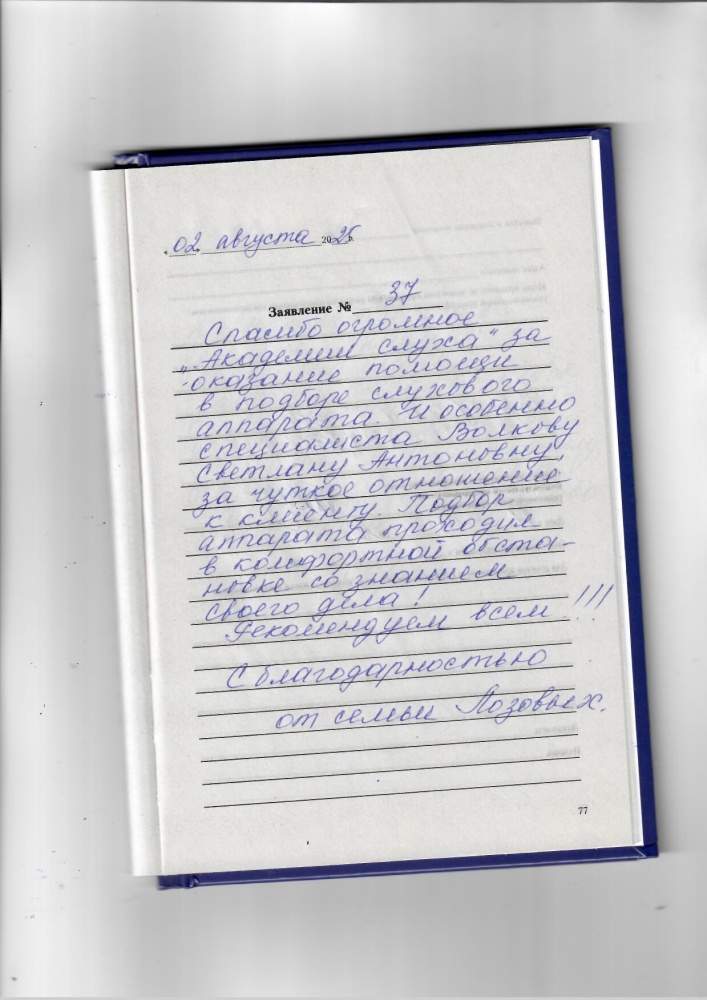 «02» августа 2025 г.
Заявление № 37
Спасибо огромное
„Академии слуха" за
оказание помощи
в подборе слухового
аппарата. И особенно
специалиста Волкову
Светлану Антоновну,
за чуткое отношение
к клиенту. Подбор
аппарата проходил
в комфортной обста-
новке со знанием
своего дела!
Рекомендуем всем!!!
С благодарностью
от семьи Лозовых.
77